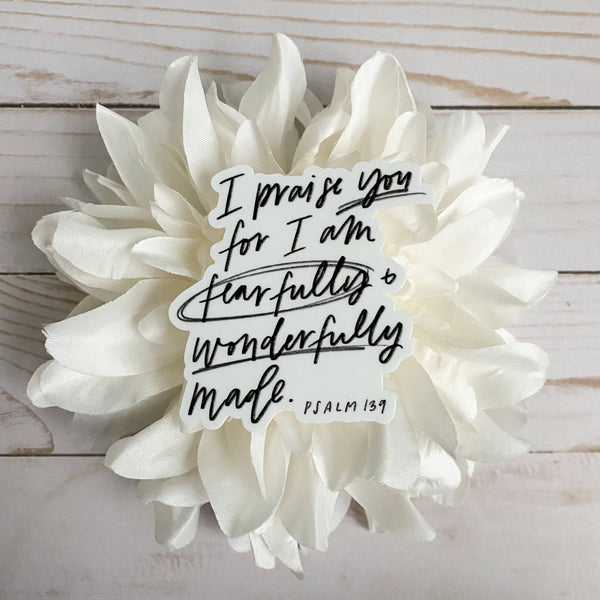 I praise you
for I am
fearfully &
wonderfully
made. PSALM 139